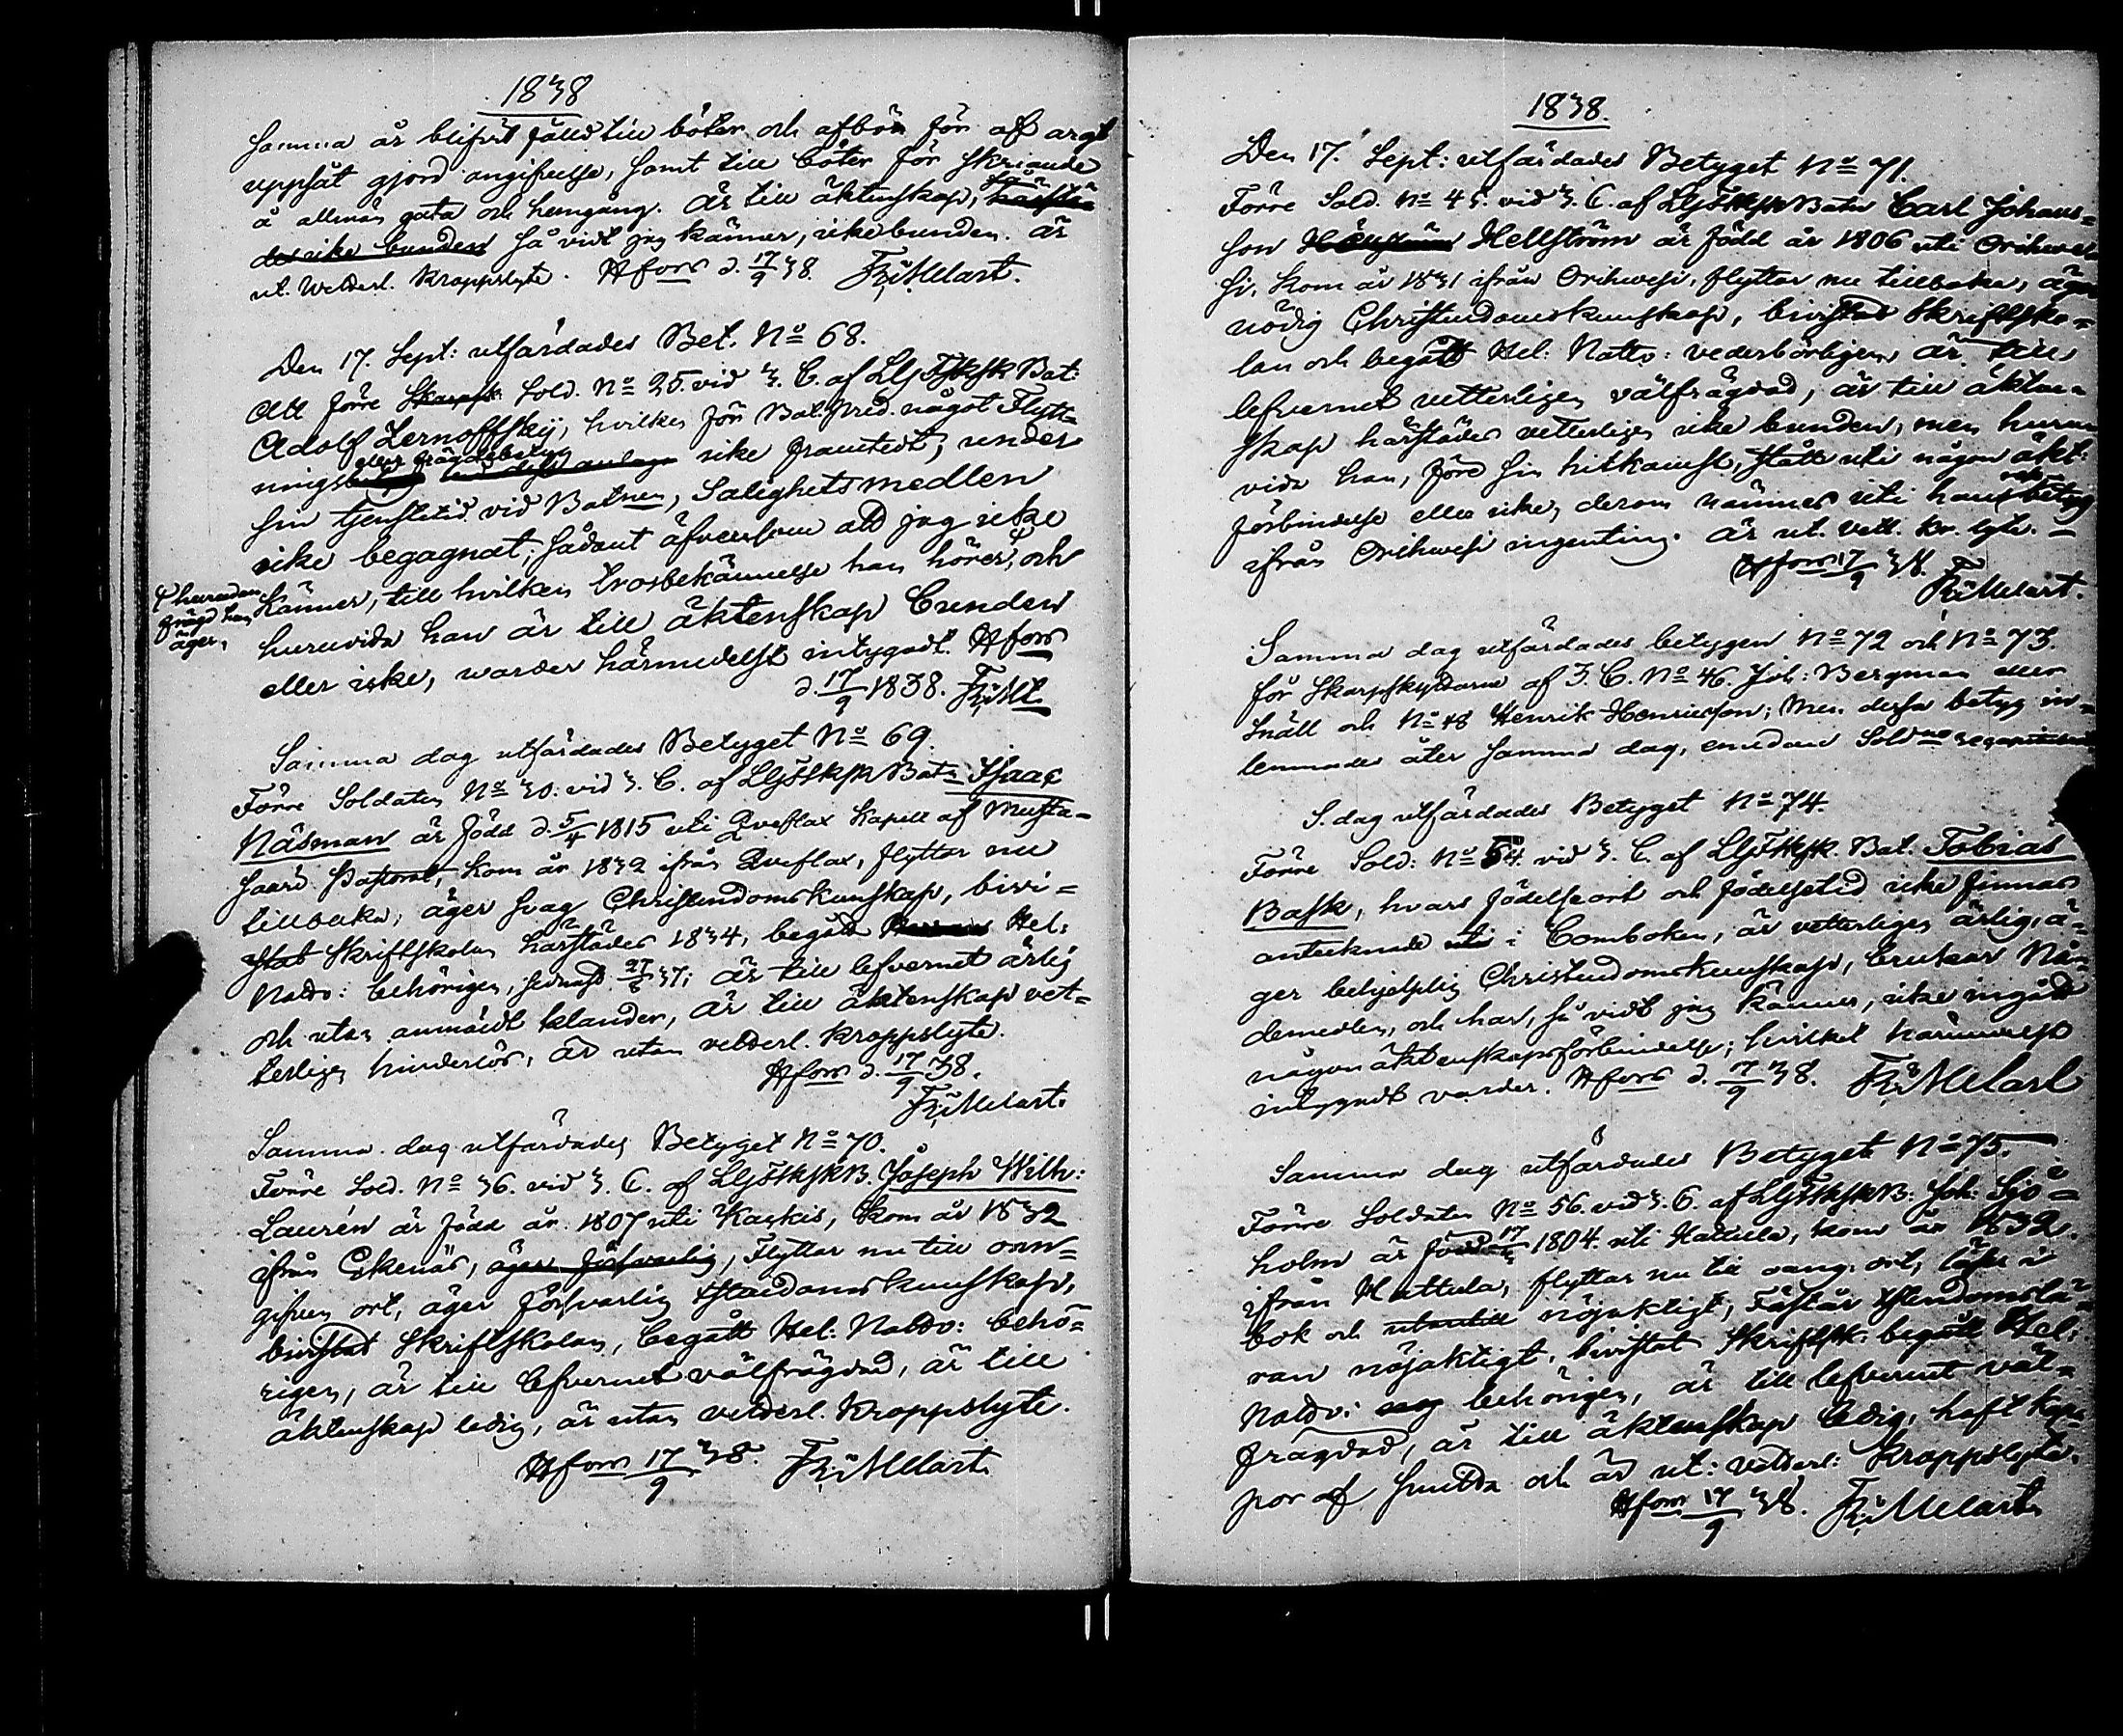 1838
samma år blifvit fälld till böter och afbön för af argt
uppsåt gjord angifvelse, samt till böter för skriande
å allmän gata och hemgång. Är till äktenskap, härstä-
des icke bunden så vidt jag känner, icke bunden. är
ut. wetderl. Kroppslyte. Hfors d. 17/9 38. Fr: Melart.
Den 17. Sept: utfärdades Bet. No 68.
Att förre Skarpsk. Sold. No 25. vid 3. C. af LGFskSk Bat:
Adolf Zernoffskij, hvilken för Bat. Pred. något Flytt-
eller frägdebetyg
nings icke framtedt, under
sin tjenstetid vid Batnen, Salighetsmedlen
icke begagnat; sådant äfvensom att jag icke
känner, till hvilken trosbekännelse han hörer, och
huruvida han är till äktenskap bunden
eller icke, warder härmedelst intygadt. Hfors
d. 17/9 1838. Fr: M.
hurudan
frägd han
äger,
Samma dag utfärdades Betyget No 69.
Förre Soldaten No 30. vid 3. C. af LGFskSk Batn Isaac
Näsman är född d. 5/4 1815 uti Qveflax Kapell af Musta-
saari Pastorat, kom år 1832 ifrån Qveflax, flyttar nu
tillbaka, äger svag Christendomskunskap, bivi-
stat Skriftskolan härstädes 1834, begått Hel:
Nattv: behörigen, sednast 37; är till lefvernet ärlig
och utan anmäldt klander, är till äktenskap vet-
terligen hinderlös, är utan vetderl. kroppslyte.
Hfors d. 17/9 38.
Fr: Melart.
Samma dag utfärdades Betyget No 70.
Förre Sold. No 36. vid 3. C. af LGFskSkB. Joseph Wilh:
Laurén är född år 1807 uti Karkis, kom år 1832
ifrån Ekenäs, äger försvarlig, Flyttar nu till oan-
gifven ort, äger försvarlig Xstendomskunskap,
bivistat Skriftskolan, begått Hel: Nattv: behö-
rigen, är till lefvernet välfrägdad, är till
äktenskap ledig, är utan vetderl. kroppslyte.
Hfors 17/9 38. Fr: Melart.
1838.
Den 17. Sept: utfärdades Betyget No 71.
Förre Sold. No 45. vid 3. C. af LGFskSk Batn Carl Johans-
son Hellström är född år 1806 uti Orihwe-
si, kom år 1831 ifrån Orihwesi, flyttar nu tillbaka, äger
nödig Christendomskunskap, bivistat Skriftsko-
lan och begått Hel: Nattv: vederbörligen, är till
lefvernet vetterligen välfrägdad, är till äkten-
skap härstädes vetterligen icke bunden, men huru-
vida han, före sin hitkomst, stått uti någon äkt:
förbindelse eller icke, derom nämnes uti hans betyg
ifrån Orihwesi ingenting. Är ut. vett. kr. lyte.
Hfors 17/9 38.
Fr: Melart.
Samma dag utfärdades betygen No 72 och No 73.
för Skarpskyttarne af 3. C. No 46. Joh: Bergman eller
Snäll och No 48 Henrik Henricsson; men dessa betyg in-
lemnades åter samma dag, emedan Soldne
S. dag utfärdades Betyget No 74.
Förre Sold: No 54. vid 3. C. af LGFskSk. Bat. Tobias
Bask, hvars födelseort och födelsetid icke finnas
antecknade i Comboken, är vetterligen ärlig, ä-
ger behjelplig Christendomskunskap, brukar Nå-
demedlen, och har, så vidt jag känner, icke ingått
någon äktenskapsförbindelse; hvilket härmedelst
intygadt varder. Hfors d. 17/9 38. Fr: Melart
Samma dag utfärdades Betyget No 75.
Förre Soldaten No 56. vid 3. C. af LGFskSkB. Joh: Sjö-
holm är född 1804. uti Hattula, kom år 1832.
ifrån Hattula, flyttar nu till oang. ort, läser i
bok och utantill nöjaktigt, Förstår Xstendomslä-
ran nöjaktigt, bivistat Skriftsk: begått Hel:
Nattv: behörigen, är till lefvernet väl-
frägdad, är till äktenskap ledig, haft kop-
por af smitta och är ut: vetderl: kroppslyte.
Hfors 17/9 38. Fr: Melart